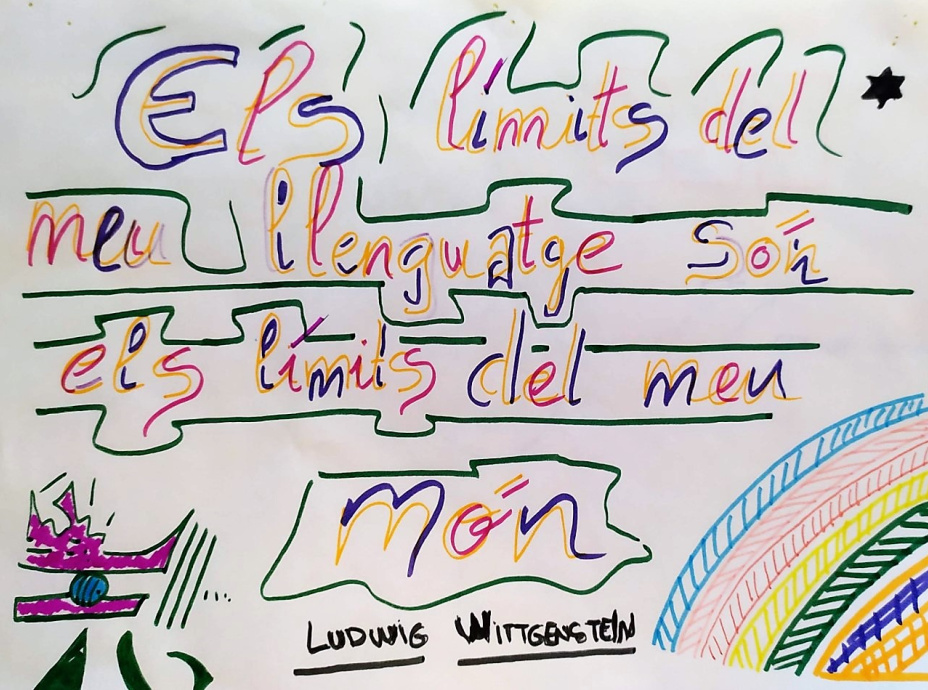 Els límits del
meu llenguatge són
els límits del meu
món
LUDWIG WITTGENSTEIN